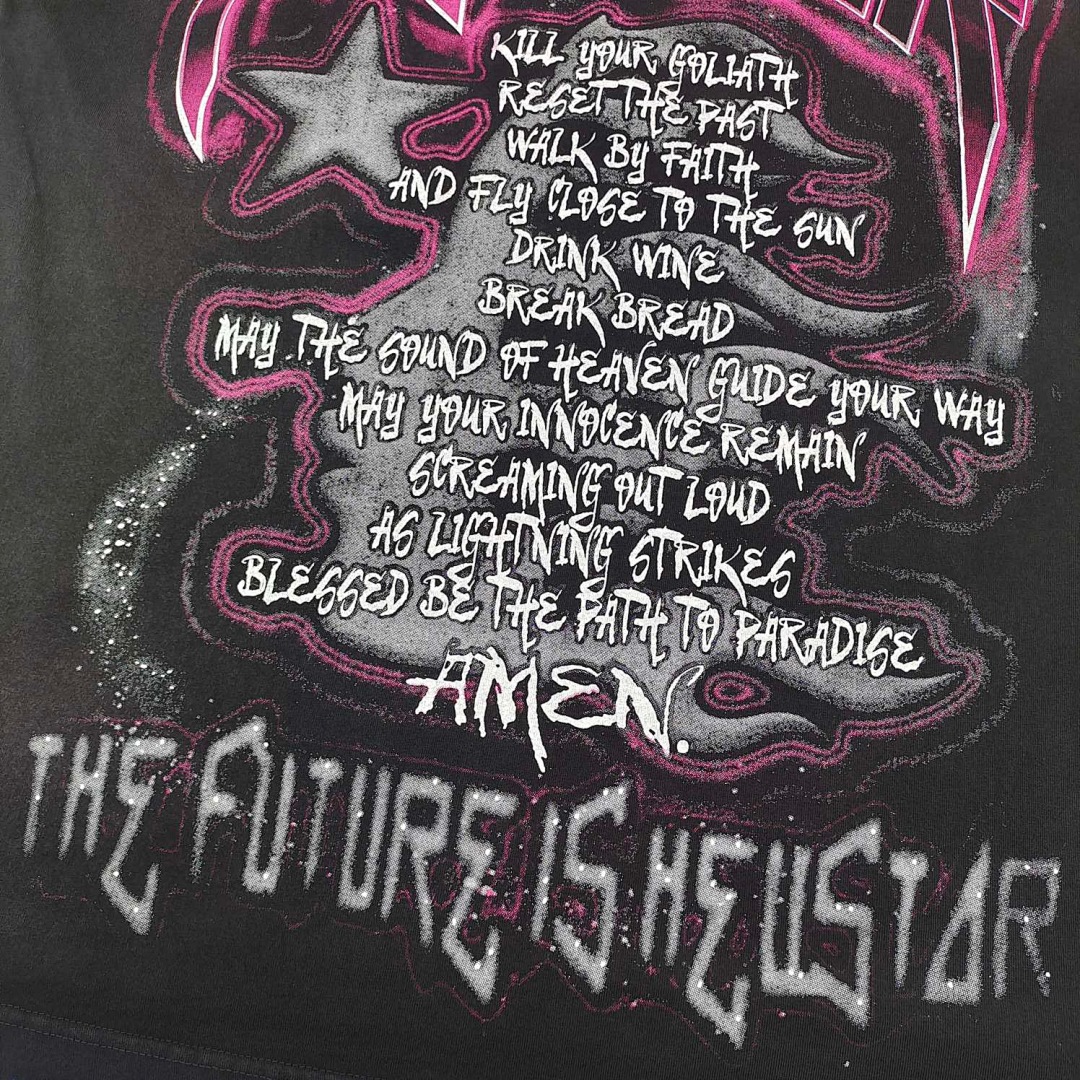 KILL YOUR GOLIATH
RESET THE PAST
WALK BY FAITH
AND FLY CLOSE TO THE SUN
DRINK WINE
BREAK BREAD
MAY THE SOUND OF HEAVEN GUIDE YOUR WAY
MAY YOUR INNOCENCE REMAIN
SCREAMING OUT LOUD
AS LIGHTNING STRIKES
BLESSED BE THE PATH TO PARADISE
AMEN.
THE FUTURE IS HELLSTAR